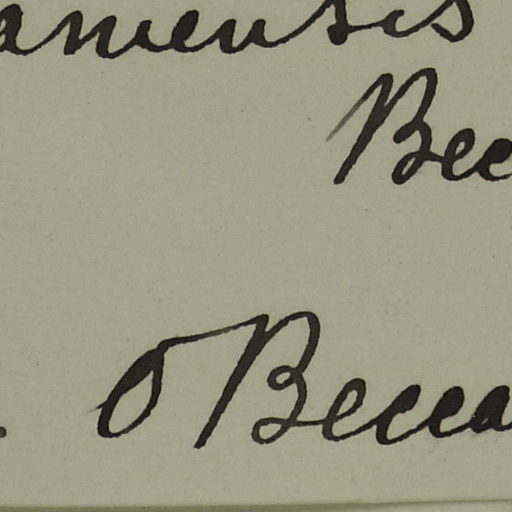 amensis
Becc
O Becca